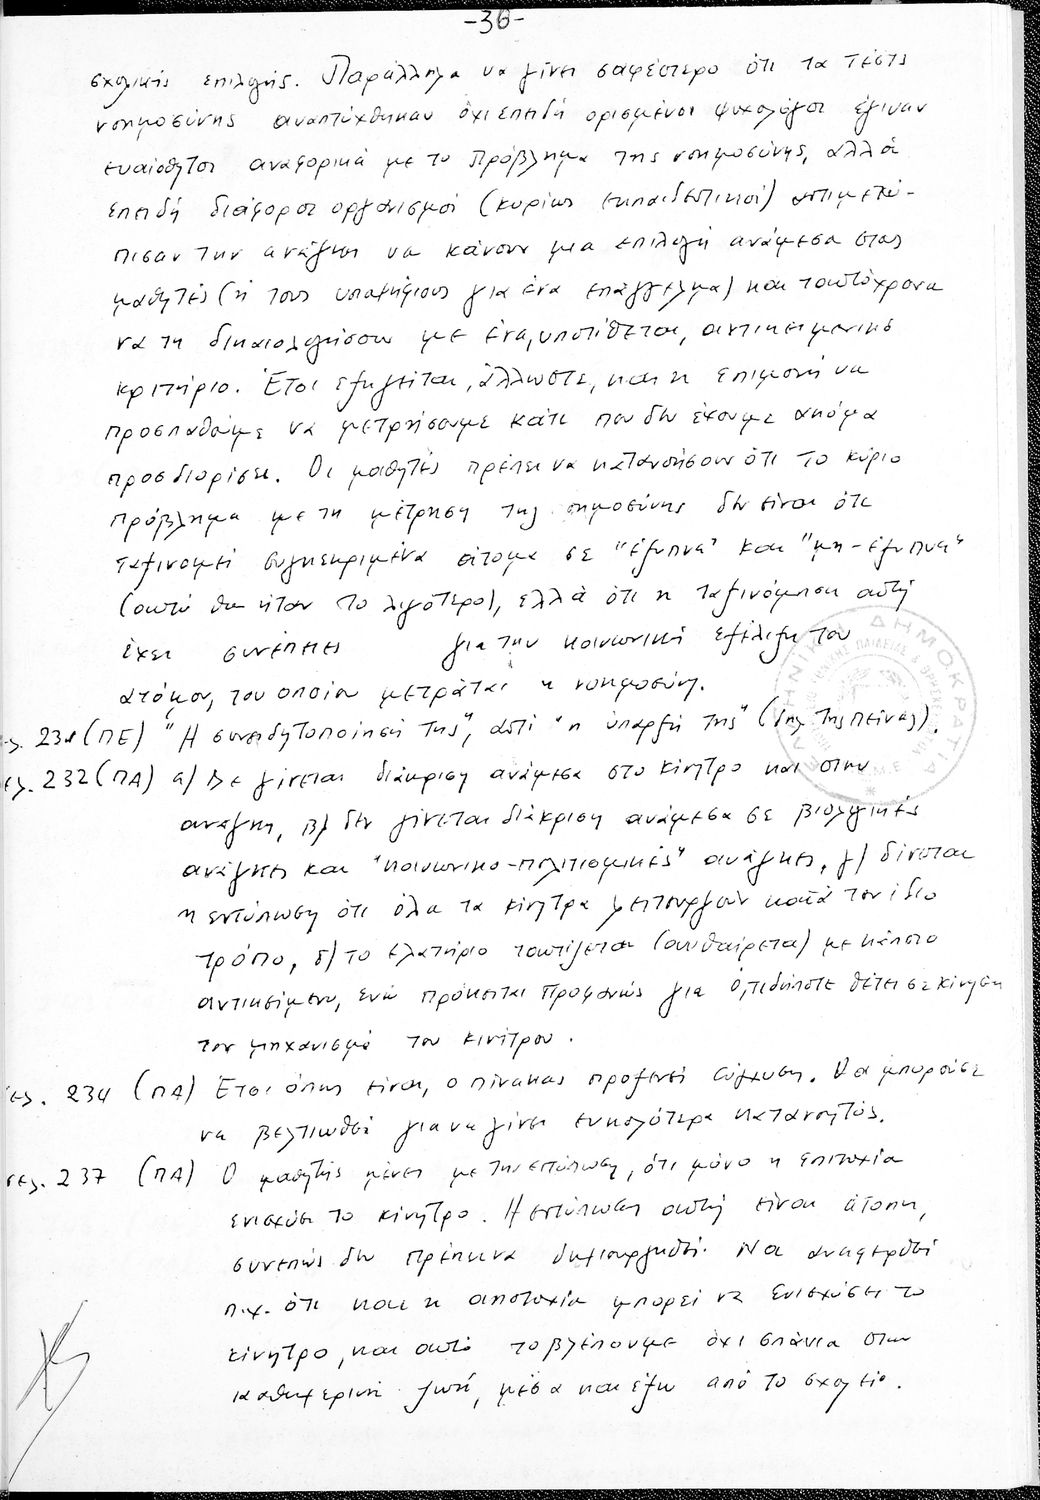 -36-
σχολικής επιλογής. Παράλληλα να γίνει σαφέστερο ότι τα τέστς
νοημοσύνης αναπτύχθηκαν όχι επειδή ορισμένοι ψυχολόγοι έγιναν
ευαίσθητοι αναφορικά με το πρόβλημα της νοημοσύνης, αλλά
επειδή διάφοροι οργανισμοί (κυρίως εκπαιδευτικοί) αντιμετώ-
πισαν την ανάγκη να κάνουν μια επιλογή ανάμεσα στους
μαθητές (ή τους υποψήφιους για ένα επάγγελμα) και ταυτόχρονα
να τη δικαιολογήσουν με ένα, υποτίθεται, αντικειμενικό
κριτήριο. Έτσι εξηγείται, άλλωστε, και η επιμονή να
προσπαθούμε να μετρήσουμε κάτι που δεν έχουμε ακόμα
προσδιορίσει. Οι μαθητές πρέπει να κατανοήσουν ότι το κύριο
πρόβλημα με τη μέτρηση της νοημοσύνης δεν είναι ότι
ταξινομεί συγκεκριμένα άτομα σε "έξυπνα" και "μη-έξυπνα"
(αυτό θα ήταν το λιγότερο), αλλά ότι η ταξινόμηση αυτή
έχει συνέπειες για την κοινωνική εξέλιξη του
ατόμου, του οποίου μετράται η νοημοσύνη.
σελ. 231 (ΠΕ) "Η συνειδητοποίησή της", αντί "η ύπαρξή της" (δηλ. της πείνας).
σελ. 232 (ΠΑ) α) Δε γίνεται διάκριση ανάμεσα στο κίνητρο και στην
ανάγκη, β) δεν γίνεται διάκριση ανάμεσα σε βιολογικές
ανάγκες και "κοινωνικο-πολιτισμικές" ανάγκες, γ) δίνεται
η εντύπωση ότι όλα τα κίνητρα λειτουργούν κατά τον ίδιο
τρόπο, δ) το ελατήριο ταυτίζεται (αυθαίρετα) με κάποιο
αντικείμενο, ενώ πρόκειται προφανώς για ό,τιδήποτε θέτει σε κίνηση
τον μηχανισμό του κινήτρου.
σελ. 234 (ΠΑ) Έτσι όπως είναι, ο πίνακας προξενεί σύγχυση. Θα μπορούσε
να βελτιωθεί για να γίνει ευκολότερα κατανοητός.
σελ. 237 (ΠΑ) Ο μαθητής μένει με την εντύπωση, ότι μόνο η επιτυχία
ενισχύει το κίνητρο. Η εντύπωση αυτή είναι άτοπη,
συνεπώς δεν πρέπει να δημιουργηθεί. Να αναφερθεί
π.χ. ότι και η αποτυχία μπορεί να ενισχύσει το
κίνητρο, και αυτό το βλέπουμε όχι σπάνια στην
καθημερινή ζωή, μέσα και έξω από το σχολείο.